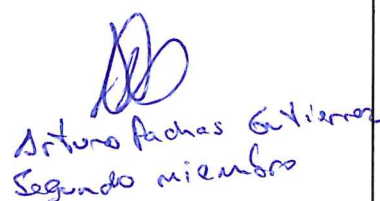 Arturo Pachas Gutierrez
Segundo miembro